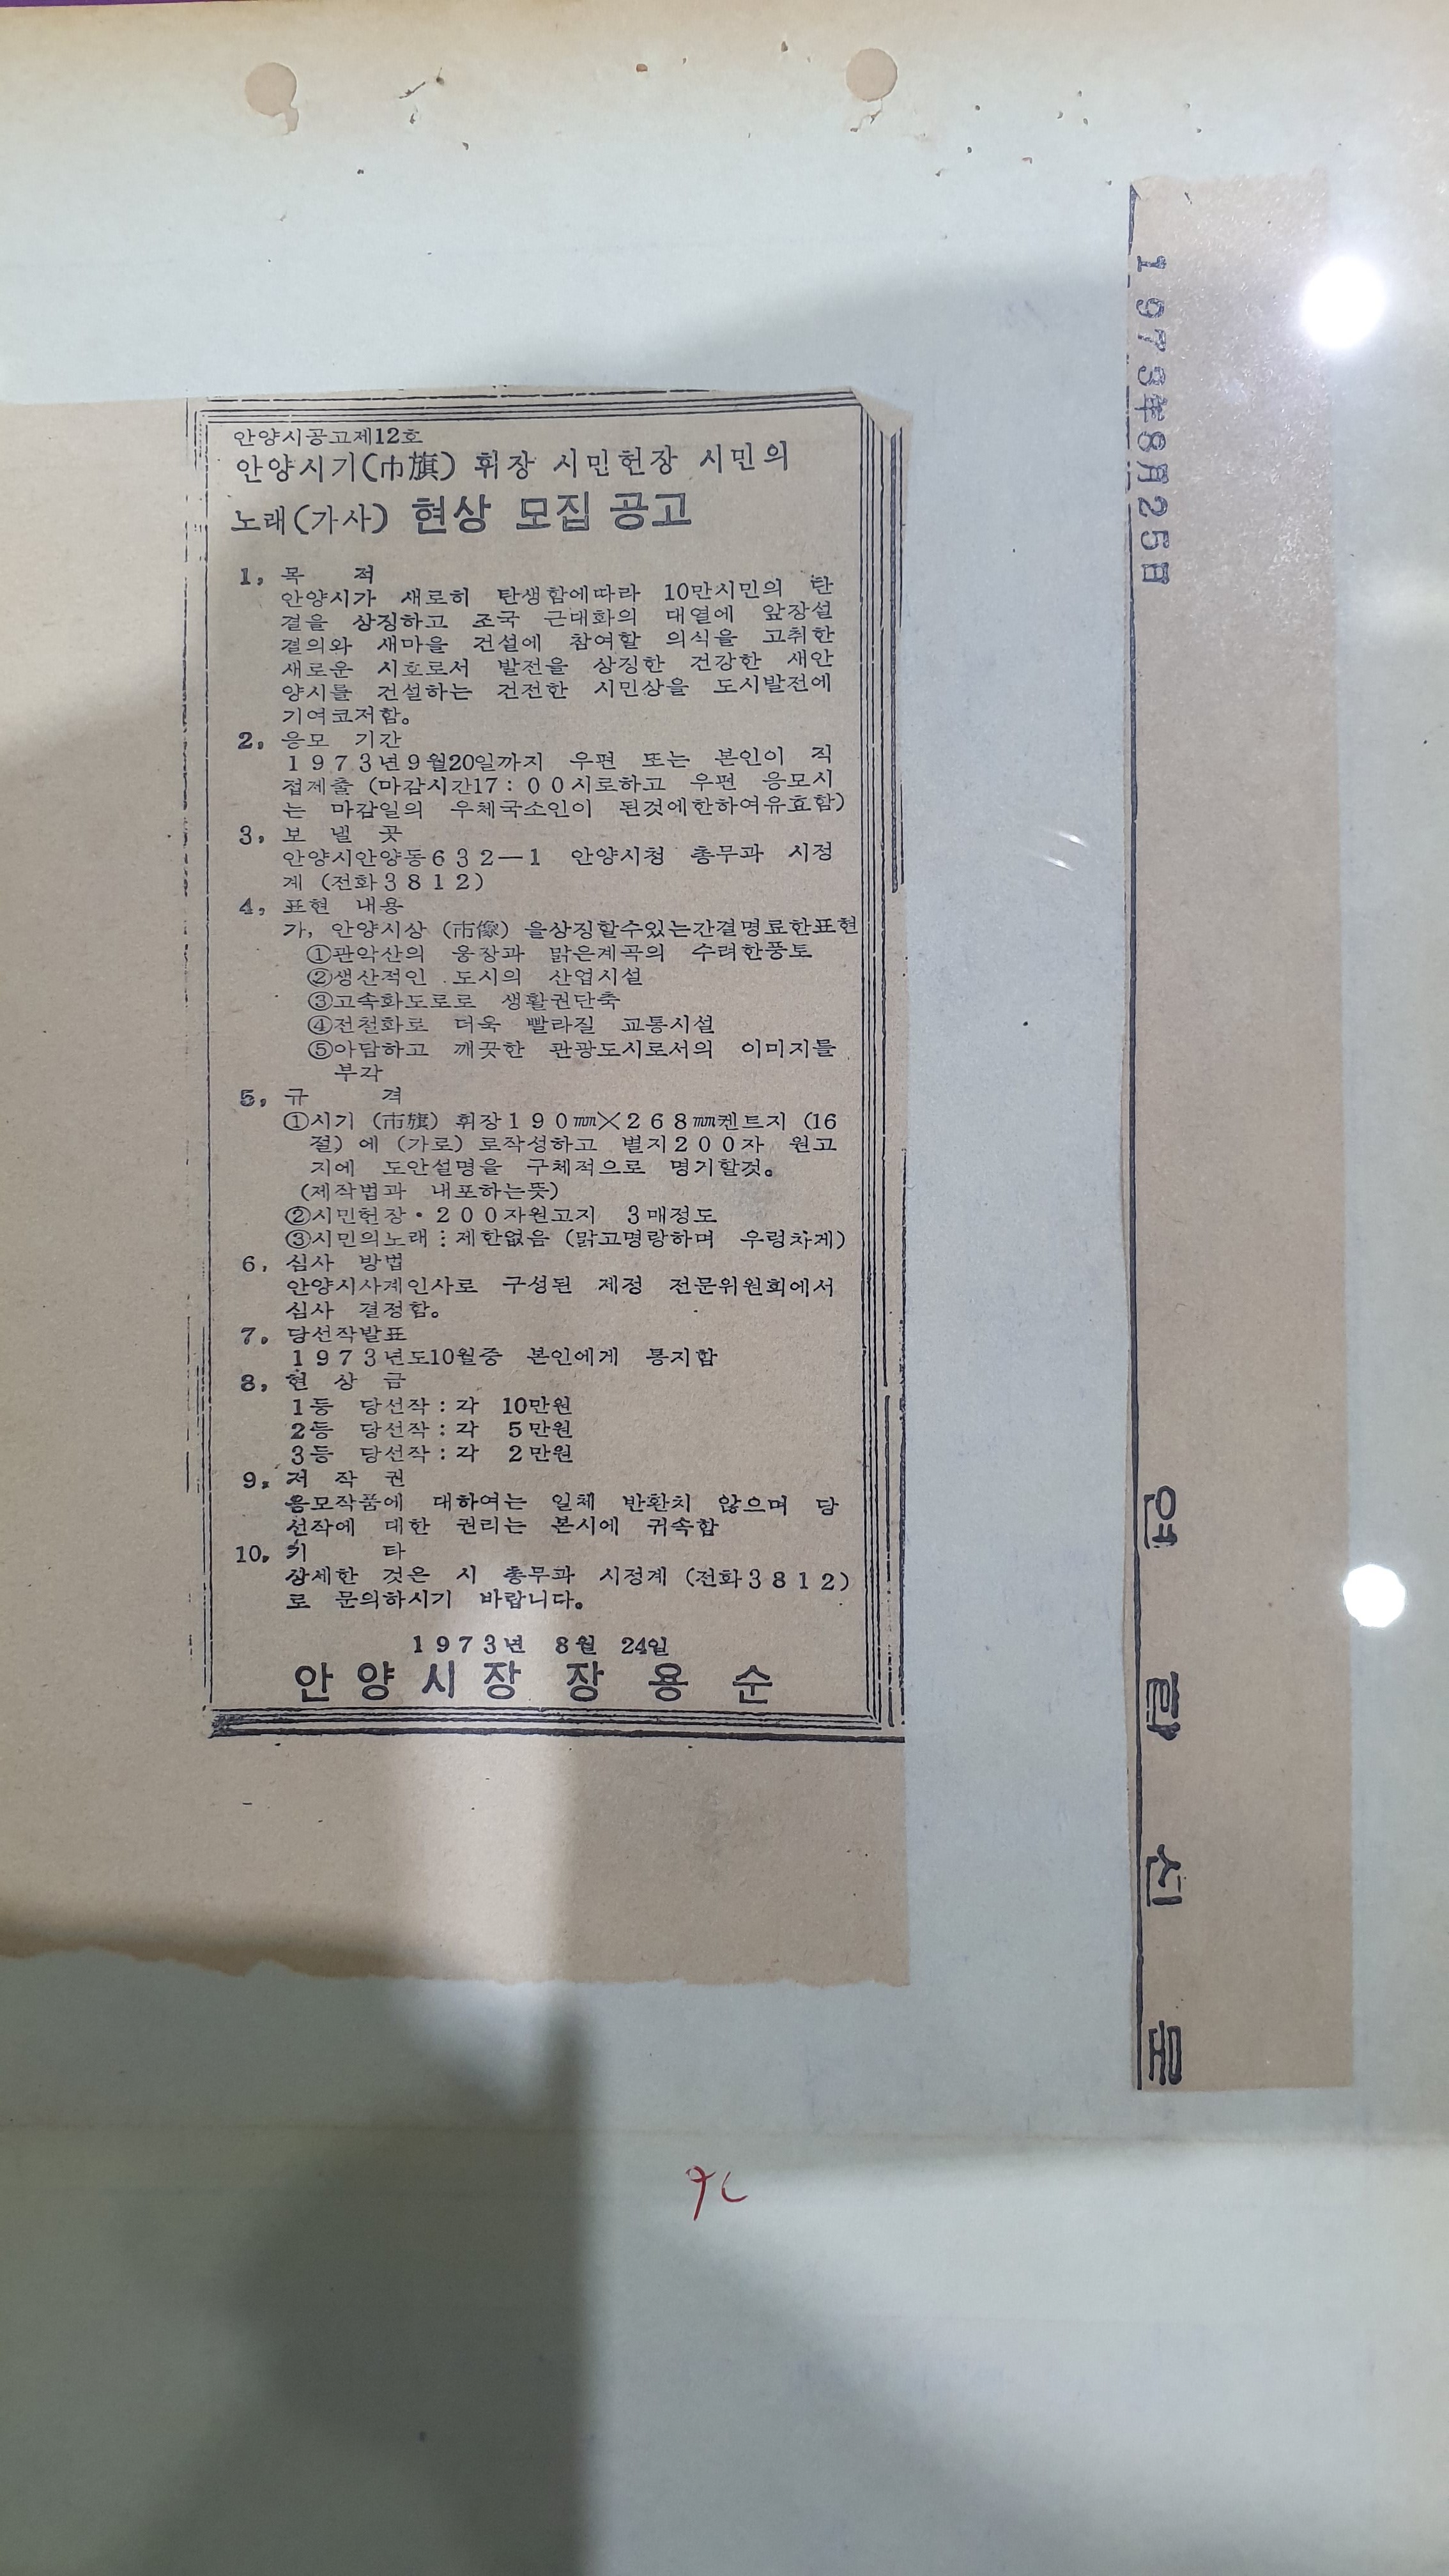 안양시공고제12호
안양시기(市旗) 휘장 시민헌장 시민의
노래(가사) 현상 모집 공고
1, 목 적
안양시가 새로히 탄생함에따라 10만시민의 탄
결을 상징하고 조국 근대화의 대열에 앞장설
결의와 새마을 건설에 참여할 의식을 고취한
새로운 시호로서 발전을 상징한 건강한 새안
양시를 건설하는 건전한 시민상을 도시발전에
기여코저함。
2, 응모 기간
1973년9월20일까지 우편 또는 본인이 직
접제출 (마감시간17:00시로하고 우편 응모시
는 마감일의 우체국소인이 된것에한하여유효함)
3, 보 낼 곳
안양시안양동632―1 안양시청 총무과 시정
계 (전화3812)
4, 표현 내용
가, 안양시상 (市像) 을상징할수있는간결명료한표현
①관악산의 웅장과 맑은계곡의 수려한풍토
②생산적인 도시의 산업시설
③고속화도로로 생활권단축
④전철화로 더욱 빨라질 교통시설
⑤아담하고 깨끗한 관광도시로서의 이미지를
부각
5, 규 격
①시기 (市旗) 휘장190㎜×268㎜켄트지 (16
절) 에 (가로) 로작성하고 별지200자 원고
지에 도안설명을 구체적으로 명기할것。
(제작법과 내포하는뜻)
②시민헌장・200자원고지 3매정도
③시민의노래:제한없음 (맑고명랑하며 우렁차게)
6, 심사 방법
안양시사계인사로 구성된 제정 전문위원회에서
심사 결정함。
7。 당선작발표
1973년도10월중 본인에게 통지함
8, 현 상 금
1등 당선작:각 10만원
2등 당선작:각 5만원
3등 당선작:각 2만원
9。 저 작 권
응모작품에 대하여는 일체 반환치 않으며 당
선작에 대한 권리는 본시에 귀속함
10。 기 타
상세한 것은 시 총무과 시정계 (전화3812)
로 문의하시기 바랍니다。
1973년 8월 24일
안양시장 장용순
1973年8月25日
연 합 신 문